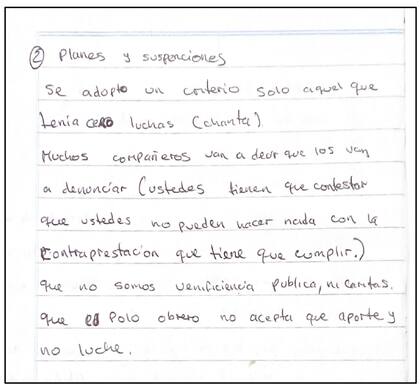 ② Planes y suspenciones
Se adopto un criterio solo aquel que
tenia cero luchas (chanta)
Muchos compañeros van a decir que los van
a denunciar (ustedes tienen que contestar
que ustedes no pueden hacer nada con la
contraprestacion que tiene que cumplir.)
que no somos veneficiencia publica, ni caritas.
que el Polo obrero no acepta que aporte y
no luche.